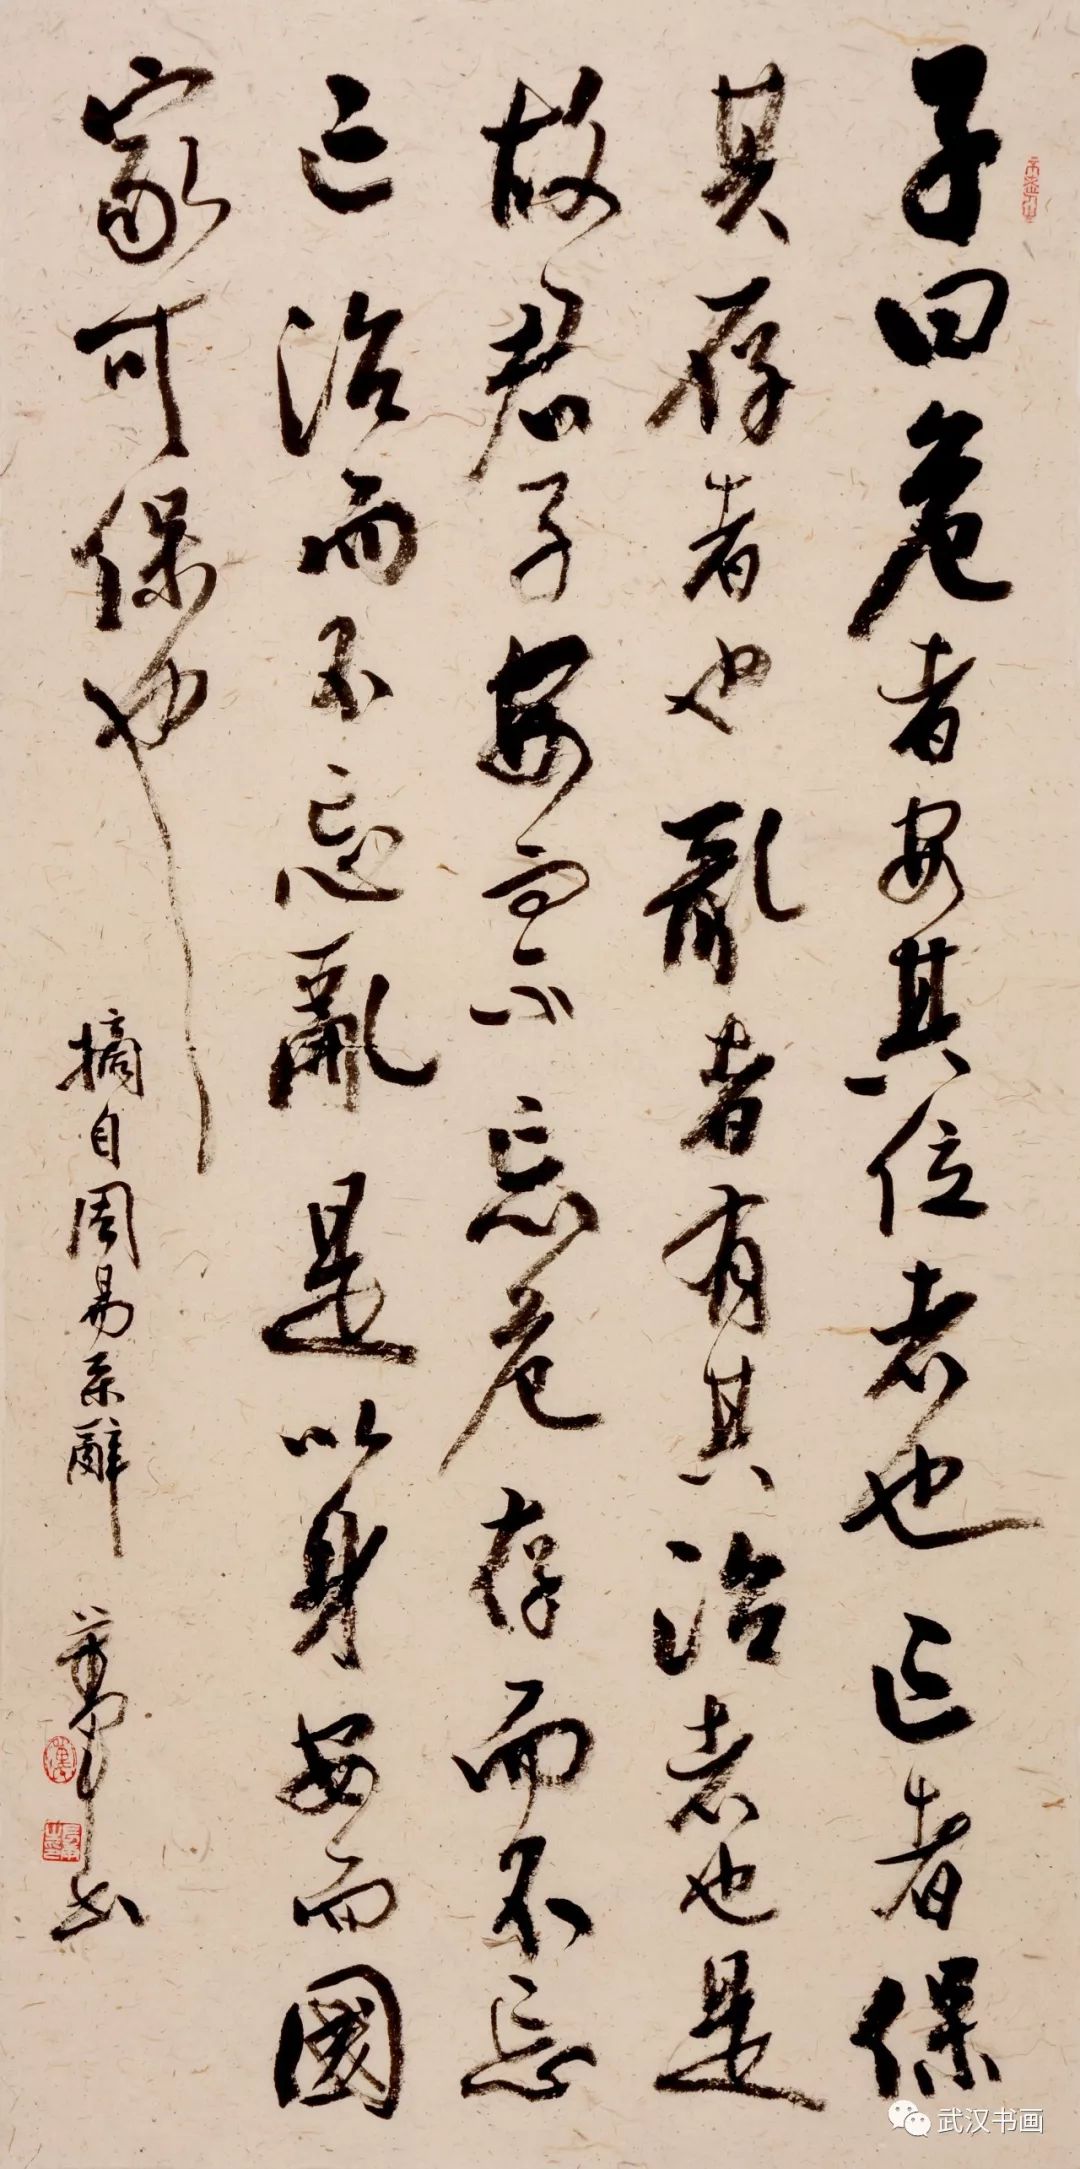 子曰危者安其位者也亡者保
其存者也亂者有其治者也是
故君子安而不忘危存而不忘
亡治而不忘亂是以身安而國
家可保也
摘自周易系辭
書
武汉书画